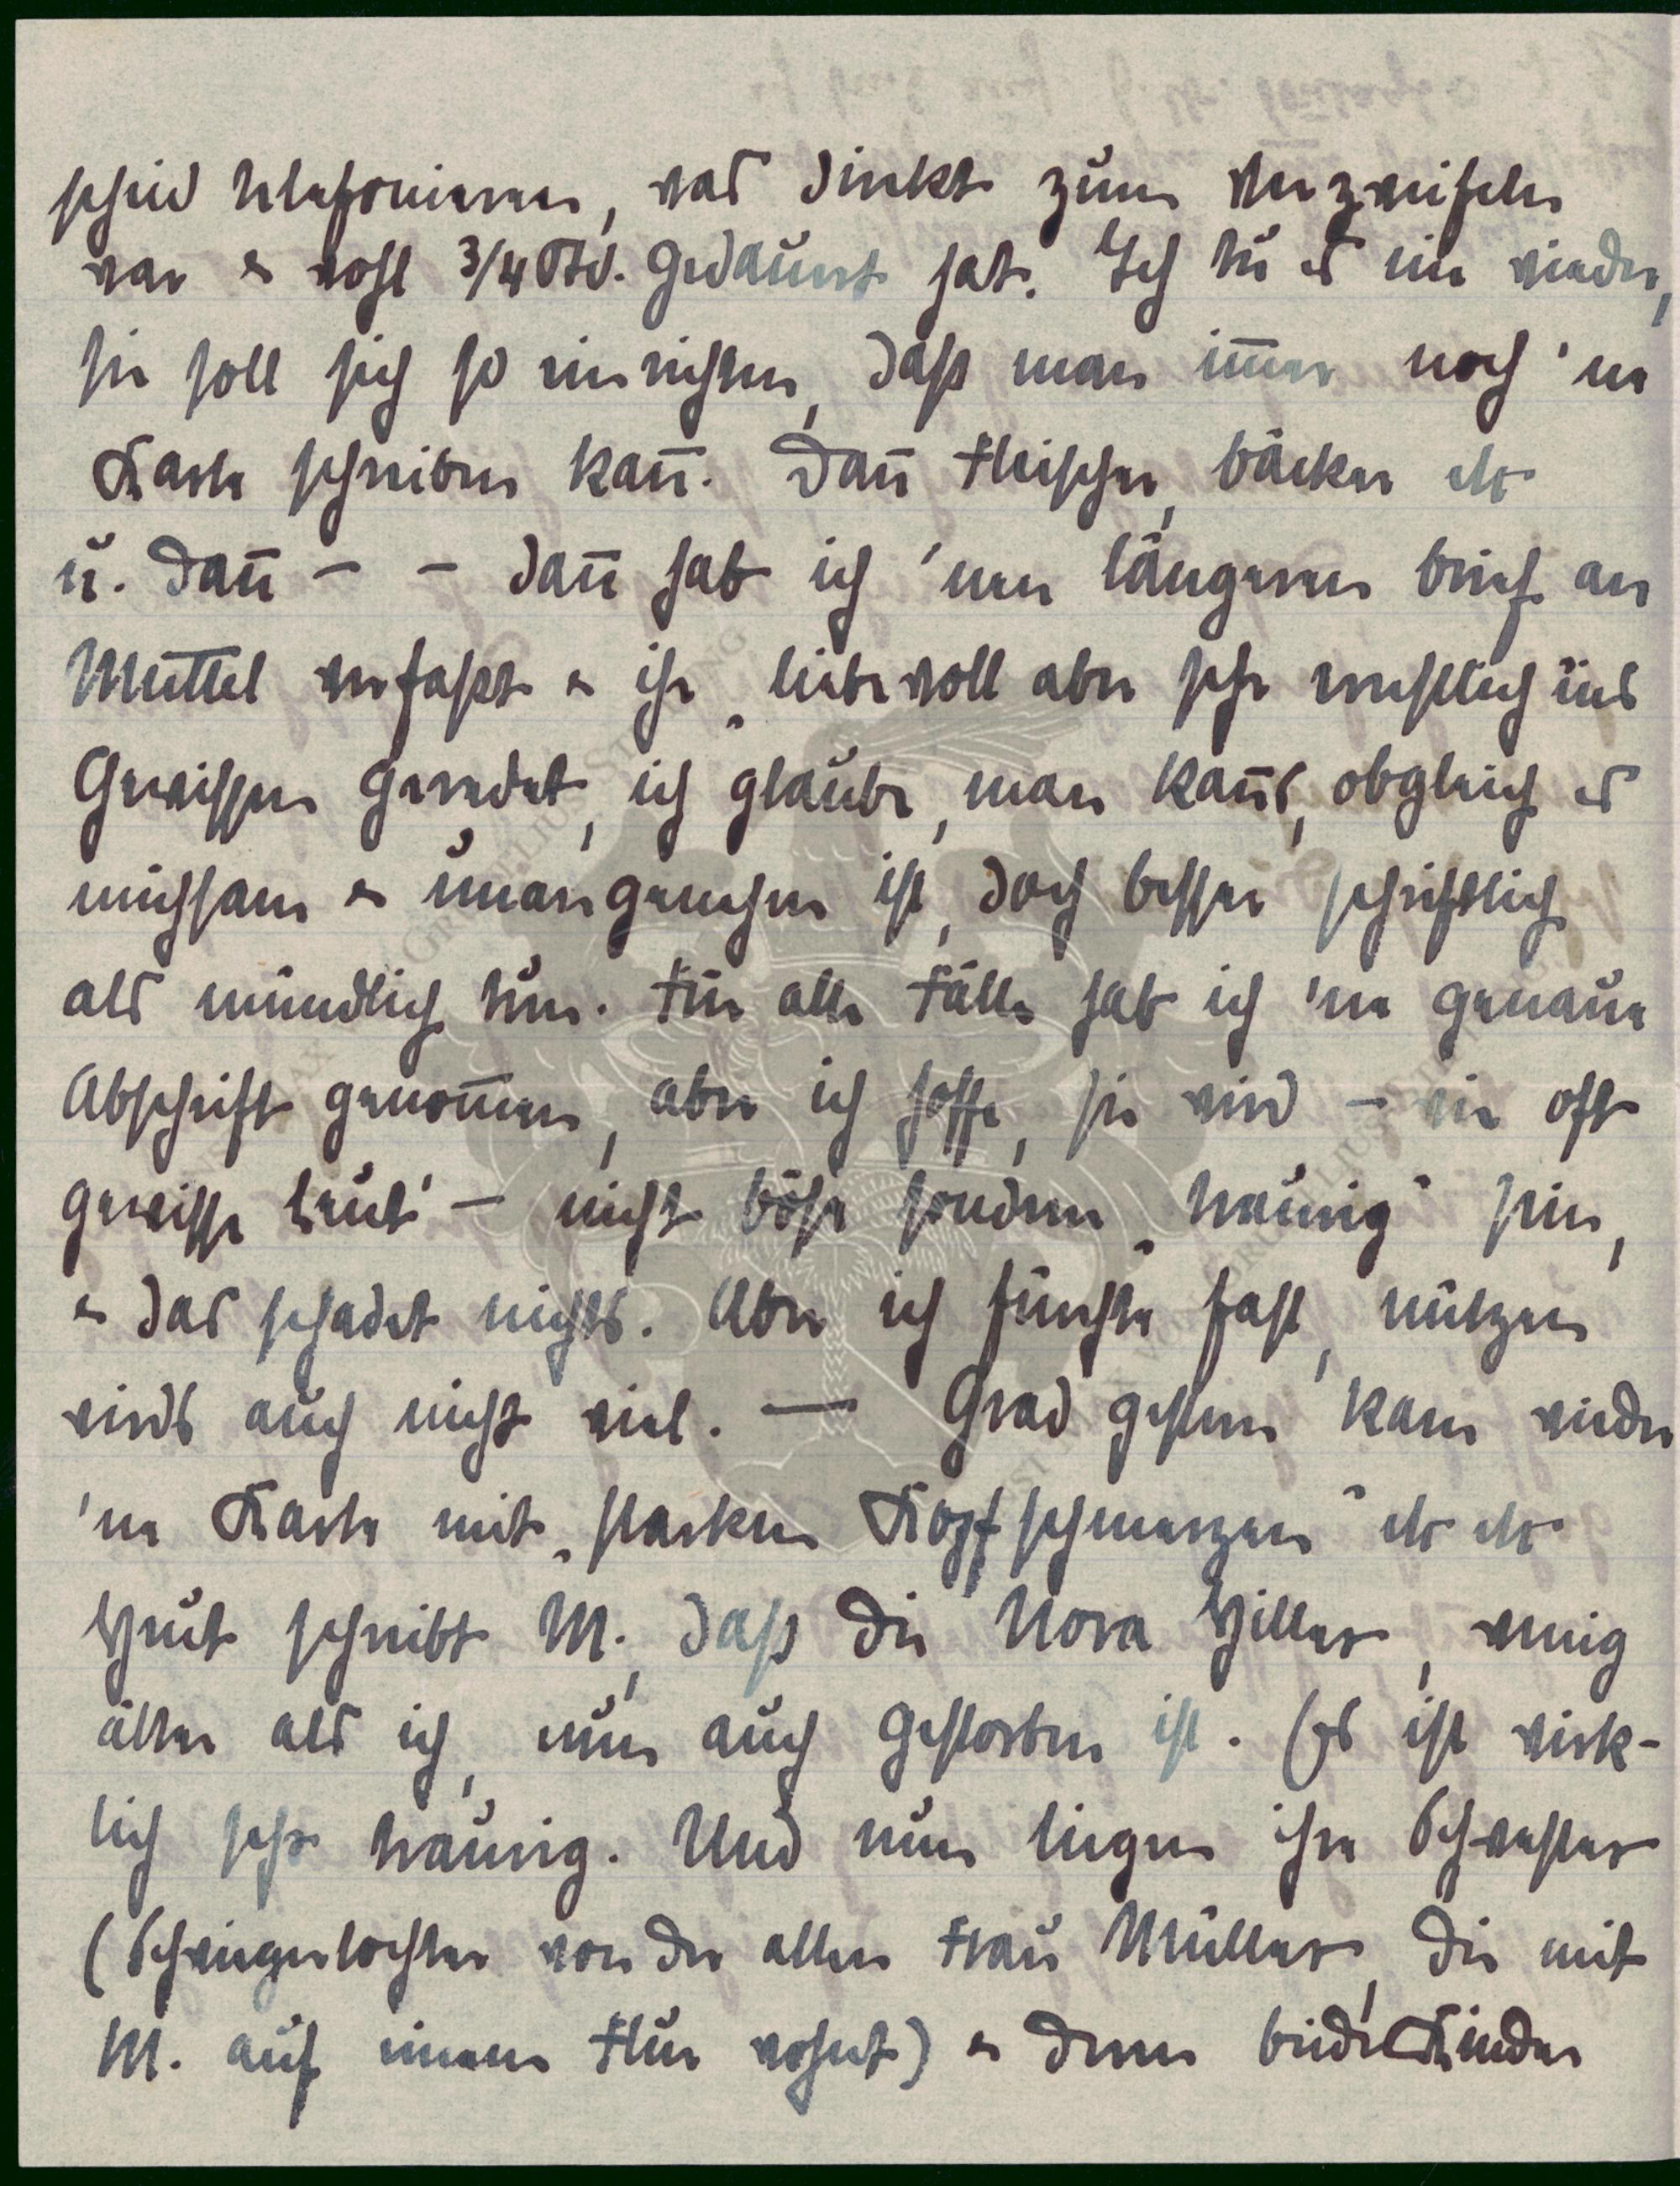 scheid telefonieren, was direkt zum verzweifeln
war & wohl 3/4 Std. gedauert hat. Ich tu es nie wieder,
sie soll sich so einrichten, daß man im̅er noch 'ne
Karte schreiben kan̅. Dan̅ Fleischer, Bäcker etc
u. dan̅ – – dan̅ hab ich 'nen längeren Brief an
Muttel verfasst & ihr „liebevoll aber sehr ernstlich" ins
Gewissen geredet, ich glaube, man kan̅s, obgleich es
mühsam & unangenehm ist, doch besser schriftlich
als mündlich tun. Für alle Fälle hab ich 'ne genaue
Abschrift genom̅en, aber ich hoffe, sie wird – wie oft
gewisse Leut' – nicht böse sondern „traurig" sein,
& das schadet nichts. Aber ich fürchte fast, nützen
wirds auch nicht viel. — Grad gestern kam wieder
'ne Karte mit „starken Kopfschmerzen" etc etc
Heut schreibt M., daß die Nora Hiller, wenig
älter als ich, nun auch gestorben ist. Es ist wirk-
lich sehr traurig. Und nun liegen ihre Schwester
(Schwiegertochter von der alten Frau Müller, die mit
M. auf einem Flur wohnt) & deren beide Kinder